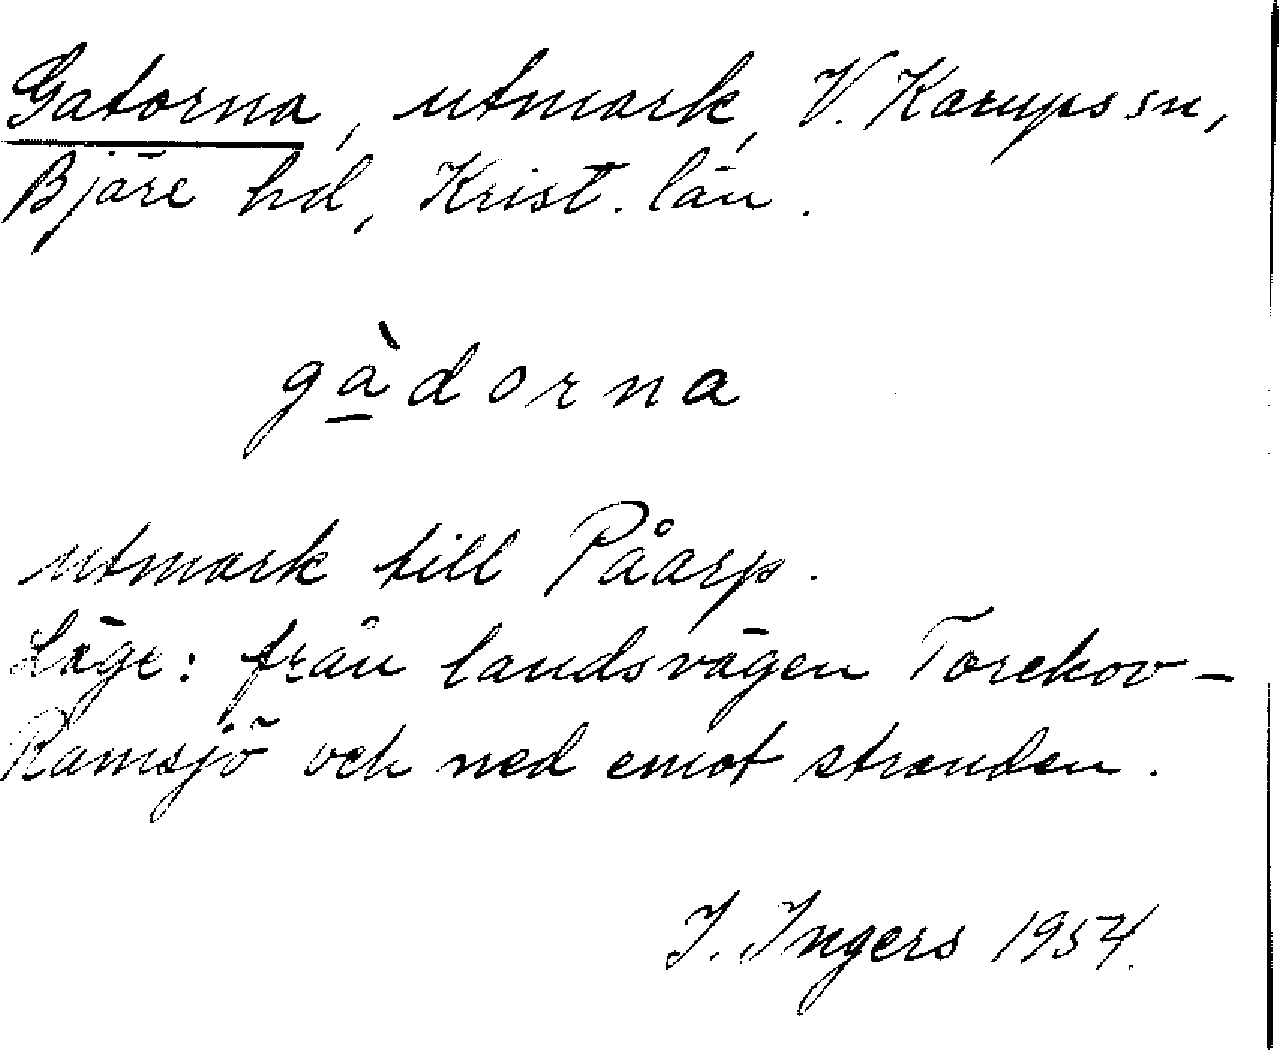 Gatorna, utmark, V. Karups sn,
Bjäre hd, Krist. län.
gàdorna
utmark till Påarp.
Läge: från landsvägen Torekov-
Ramsjö och ned emot stranden.
I. Ingers 1954.